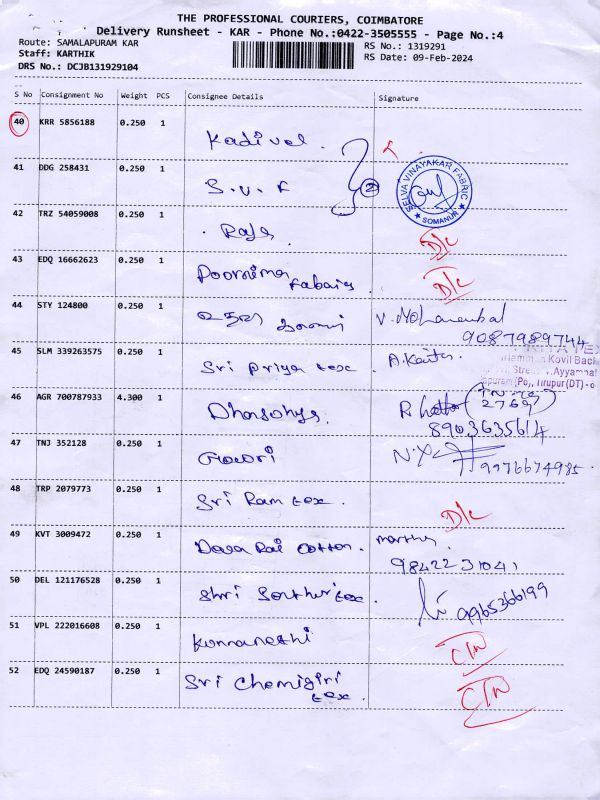 THE PROFESSIONAL COURIERS, COIMBATORE
Delivery Runsheet - KAR - Phone No.:0422-3505555 - Page No.:4
Route: SAMALAPURAM KAR
RS No.: 1319291
Staff: KARTHIK
RS Date: 09-Feb-2024
DRS No.: DCJB131929104
S No Consignment No Weight PCS Consignee Details Signature
40 KRR 5856188 0.250 1 Kadivel.
41 DDG 258431 0.250 1 S.V.F 2 SELVA VINAYAKAR FABRIC ★ SOMANUR ★
42 TRZ 54059008 0.250 1 Raja D/L
43 EDQ 16662623 0.250 1 Poornima D/L
Fabrics
44 STY 124800 0.250 1 V. Mohanambal
9087989744
45 SLM 339263575 0.250 1 Sri Priya tex. A.
Kovil Back
Ayyampal
(Po), Tirupur (DT)
46 AGR 700787933 4.300 1 R 2769
8903635614
47 TNJ 352128 0.250 1 Gowri 9976674985.
48 TRP 2079773 0.250 1 Sri Ram tex. D/L
49 KVT 3009472 0.250 1 Cotton.
9842231041
50 DEL 121176528 0.250 1 Shri tex. 9965366199
51 VPL 222016608 0.250 1 CTN
52 EDQ 24590187 0.250 1 Sri Chemigiri CTN
tex.